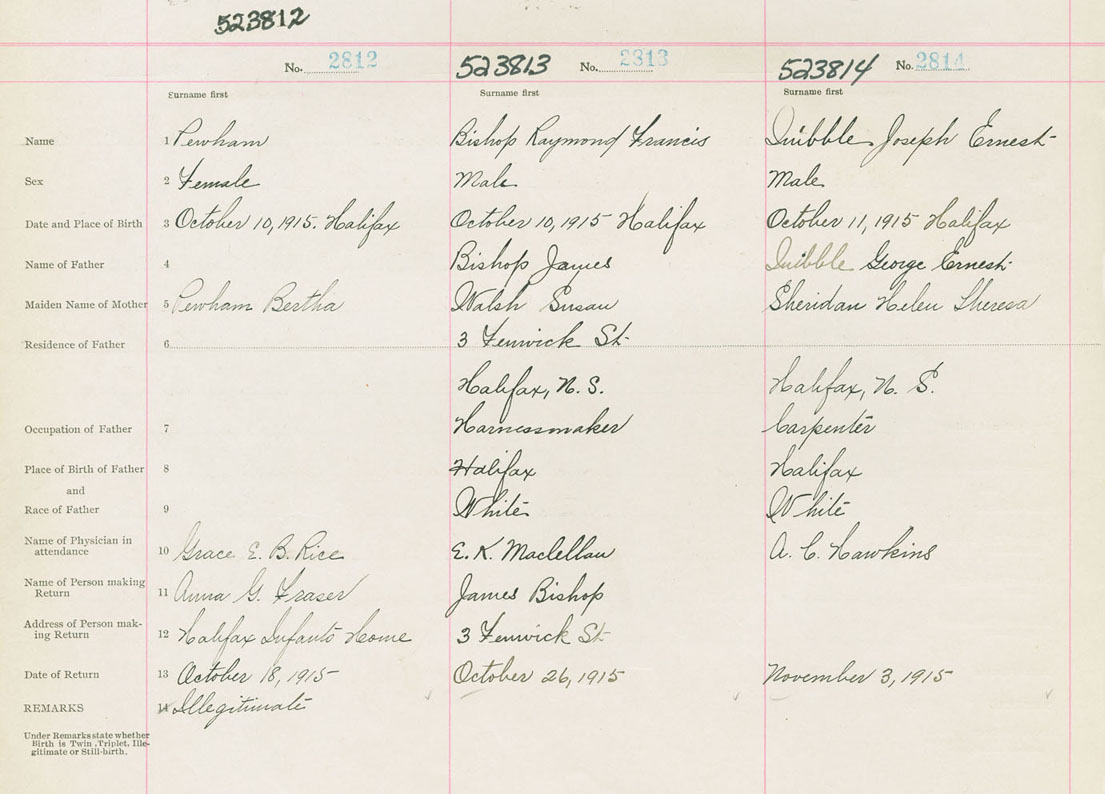 523812
No. 2812 523813 No. 2813 523814 No. 2814
Surname first Surname first Surname first
Name 1 Bishop Raymond Francis Joseph Ernest
Sex 2 Female Male Male
Date and Place of Birth 3 October 10, 1915. Halifax October 10, 1915 Halifax October 11, 1915 Halifax
Name of Father 4 Bishop James George Ernest
Maiden Name of Mother 5 Bertha Walsh Susan Sheridan Helen Theresa
Residence of Father 6 3 Fenwick St.
Halifax, N. S. Halifax, N. S.
Occupation of Father 7 Harnessmaker Carpenter
Place of Birth of Father 8 Halifax Halifax
and
Race of Father 9 White White
Name of Physician in
attendance 10 Grace E. B. Rice E. K. Maclellan A. C. Hawkins
Name of Person making
Return 11 Anna G. Fraser James Bishop
Address of Person mak-
ing Return 12 Halifax Infants Home 3 Fenwick St.
Date of Return 13 October 18, 1915 October 26, 1915 November 3, 1915
REMARKS 14 Illegitimate
Under Remarks state whether
Birth is Twin, Triplet, Ille-
gitimate or Still-birth.